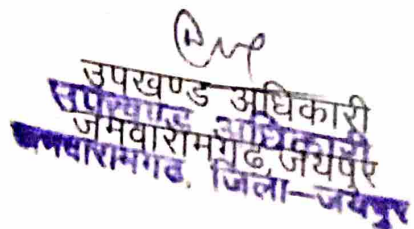 उपखण्ड अधिकारी
उपखण्ड अधिकारी
जमवारामगढ़, जयपुर
जमवारामगढ, जिला-जयपुर